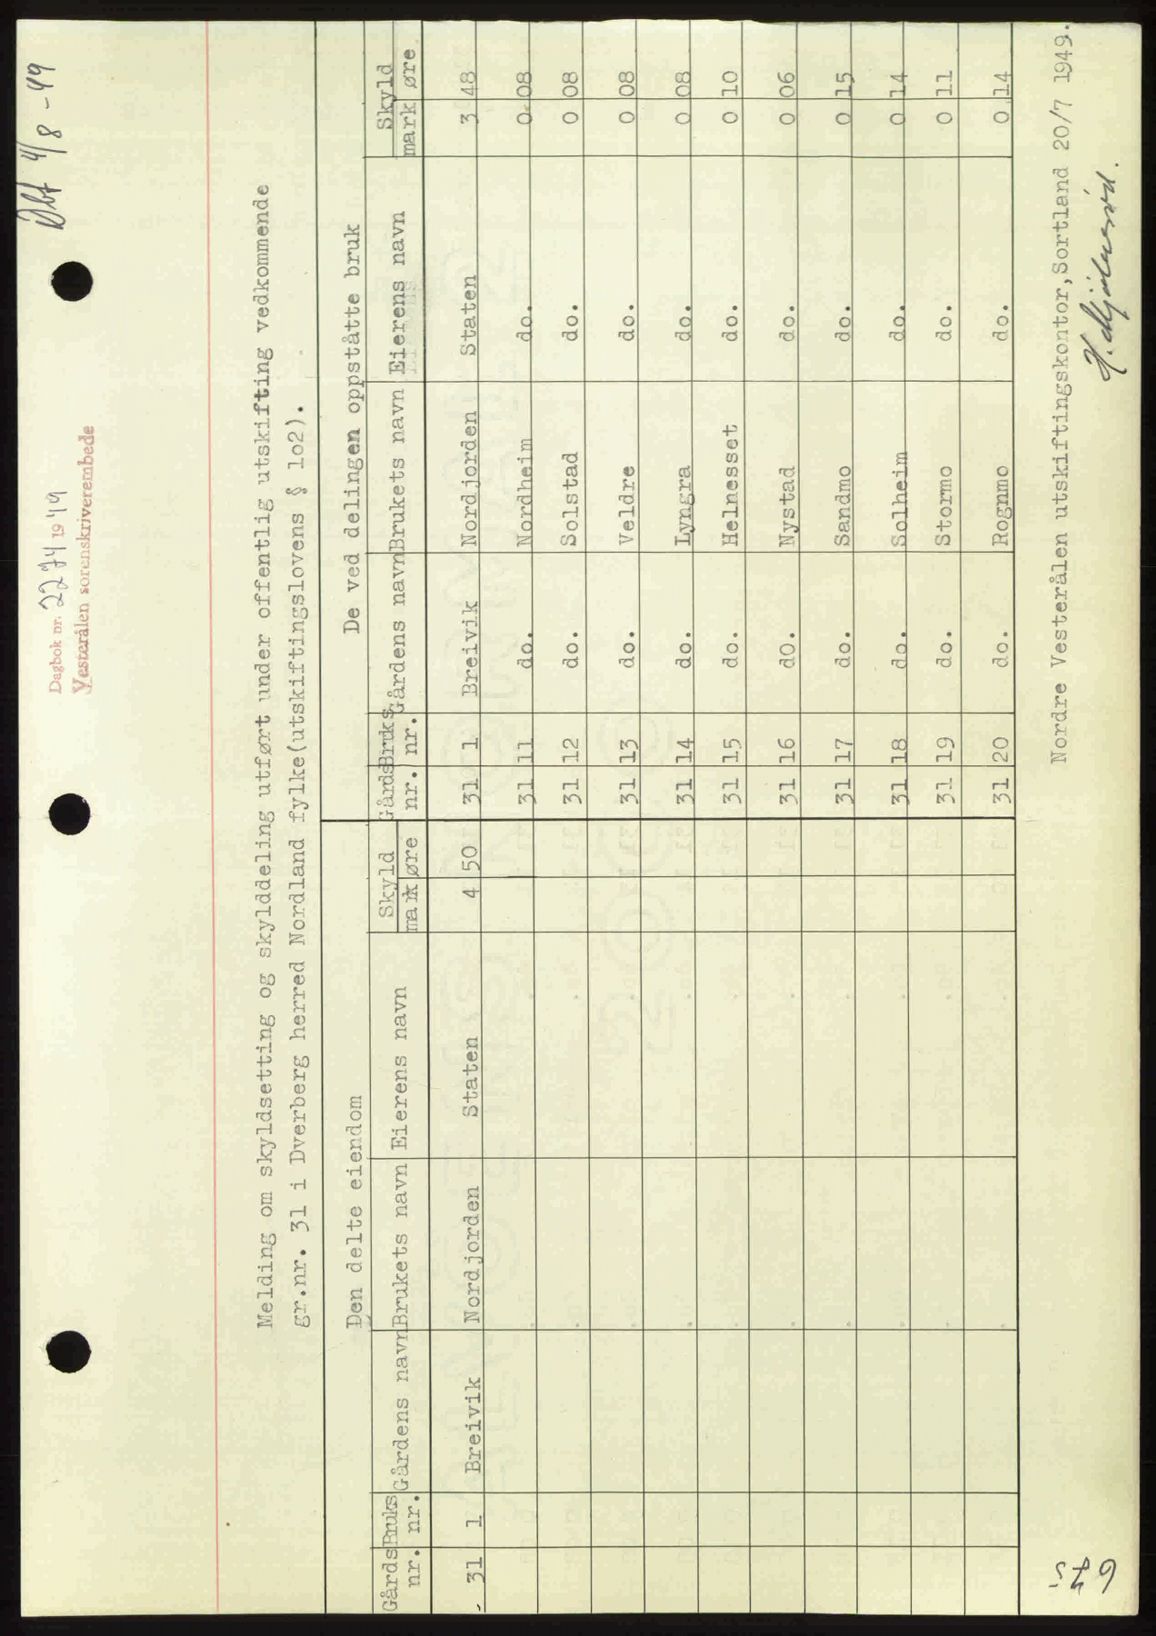 Dagbok nr. 2274 1949
Vesterålen sorenskriverembede
Dbf 4/8-49
Melding om skyldsetting og skylddeling utført under offentlig utskifting vedkommende
gr.nr. 31 i Dverberg herred Nordland fylke(utskiftingslovens § 102).
Den delte eiendom
De ved delingen oppståtte bruk
Gårds nr. Bruks nr. Gårdens navn Brukets navn Eierens navn Skyld mark øre
Gårds nr. Bruks nr. Gårdens navn Brukets navn Eierens navn Skyld mark øre
31 1 Breivik Nordjorden Staten 4 50 31 1 Breivik Nordjorden Staten 3 48
31 11 do. Nordheim do. 0 08
31 12 do. Solstad do. 0 08
31 13 do. Veldre do. 0 08
31 14 do. Lyngra do. 0 08
31 15 do. Helnesset do. 0 10
31 16 do. Nystad do. 0 06
31 17 do. Sandmo do. 0 15
31 18 do. Solheim do. 0 14
31 19 do. Stormo do. 0 11
31 20 do. Rognmo do. 0 14
Nordre Vesterålen utskiftingskontor, Sortland 20/7 1949.